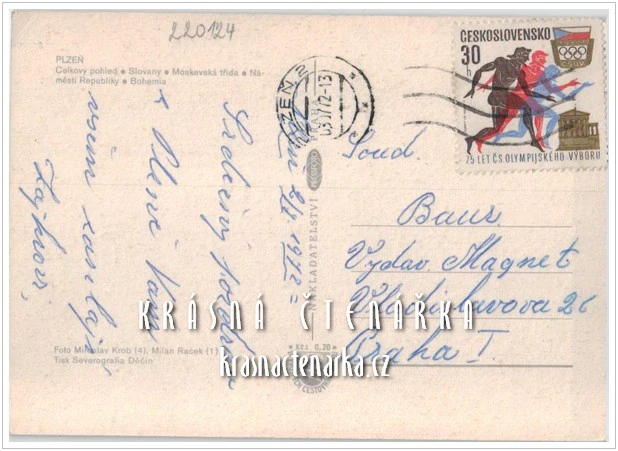 220124
PLZEŇ
Celkový pohled ● Slovany ● Moskevská třída ● Ná-
městí Republiky ● Bohemia
ČESKOSLOVENSKO
30
h
75 LET ČS. OLYMPIJSKÉHO VÝBORU
PLZEŇ 2
72-13
1972
Srdečný pozdrav
z Plzně Vám
všem zasílají
Zajícovi
NAKLADATELSTVÍ
Soud.
Baur
Vydav. Magnet
Vladislavova 26
Praha 1.
KRÁSNÁ ČTENÁŘKA
krasnactenarka.cz
Foto Miroslav Krob (4), Milan Raček (1)
Tisk Severografia Děčín
Kčs 0,20